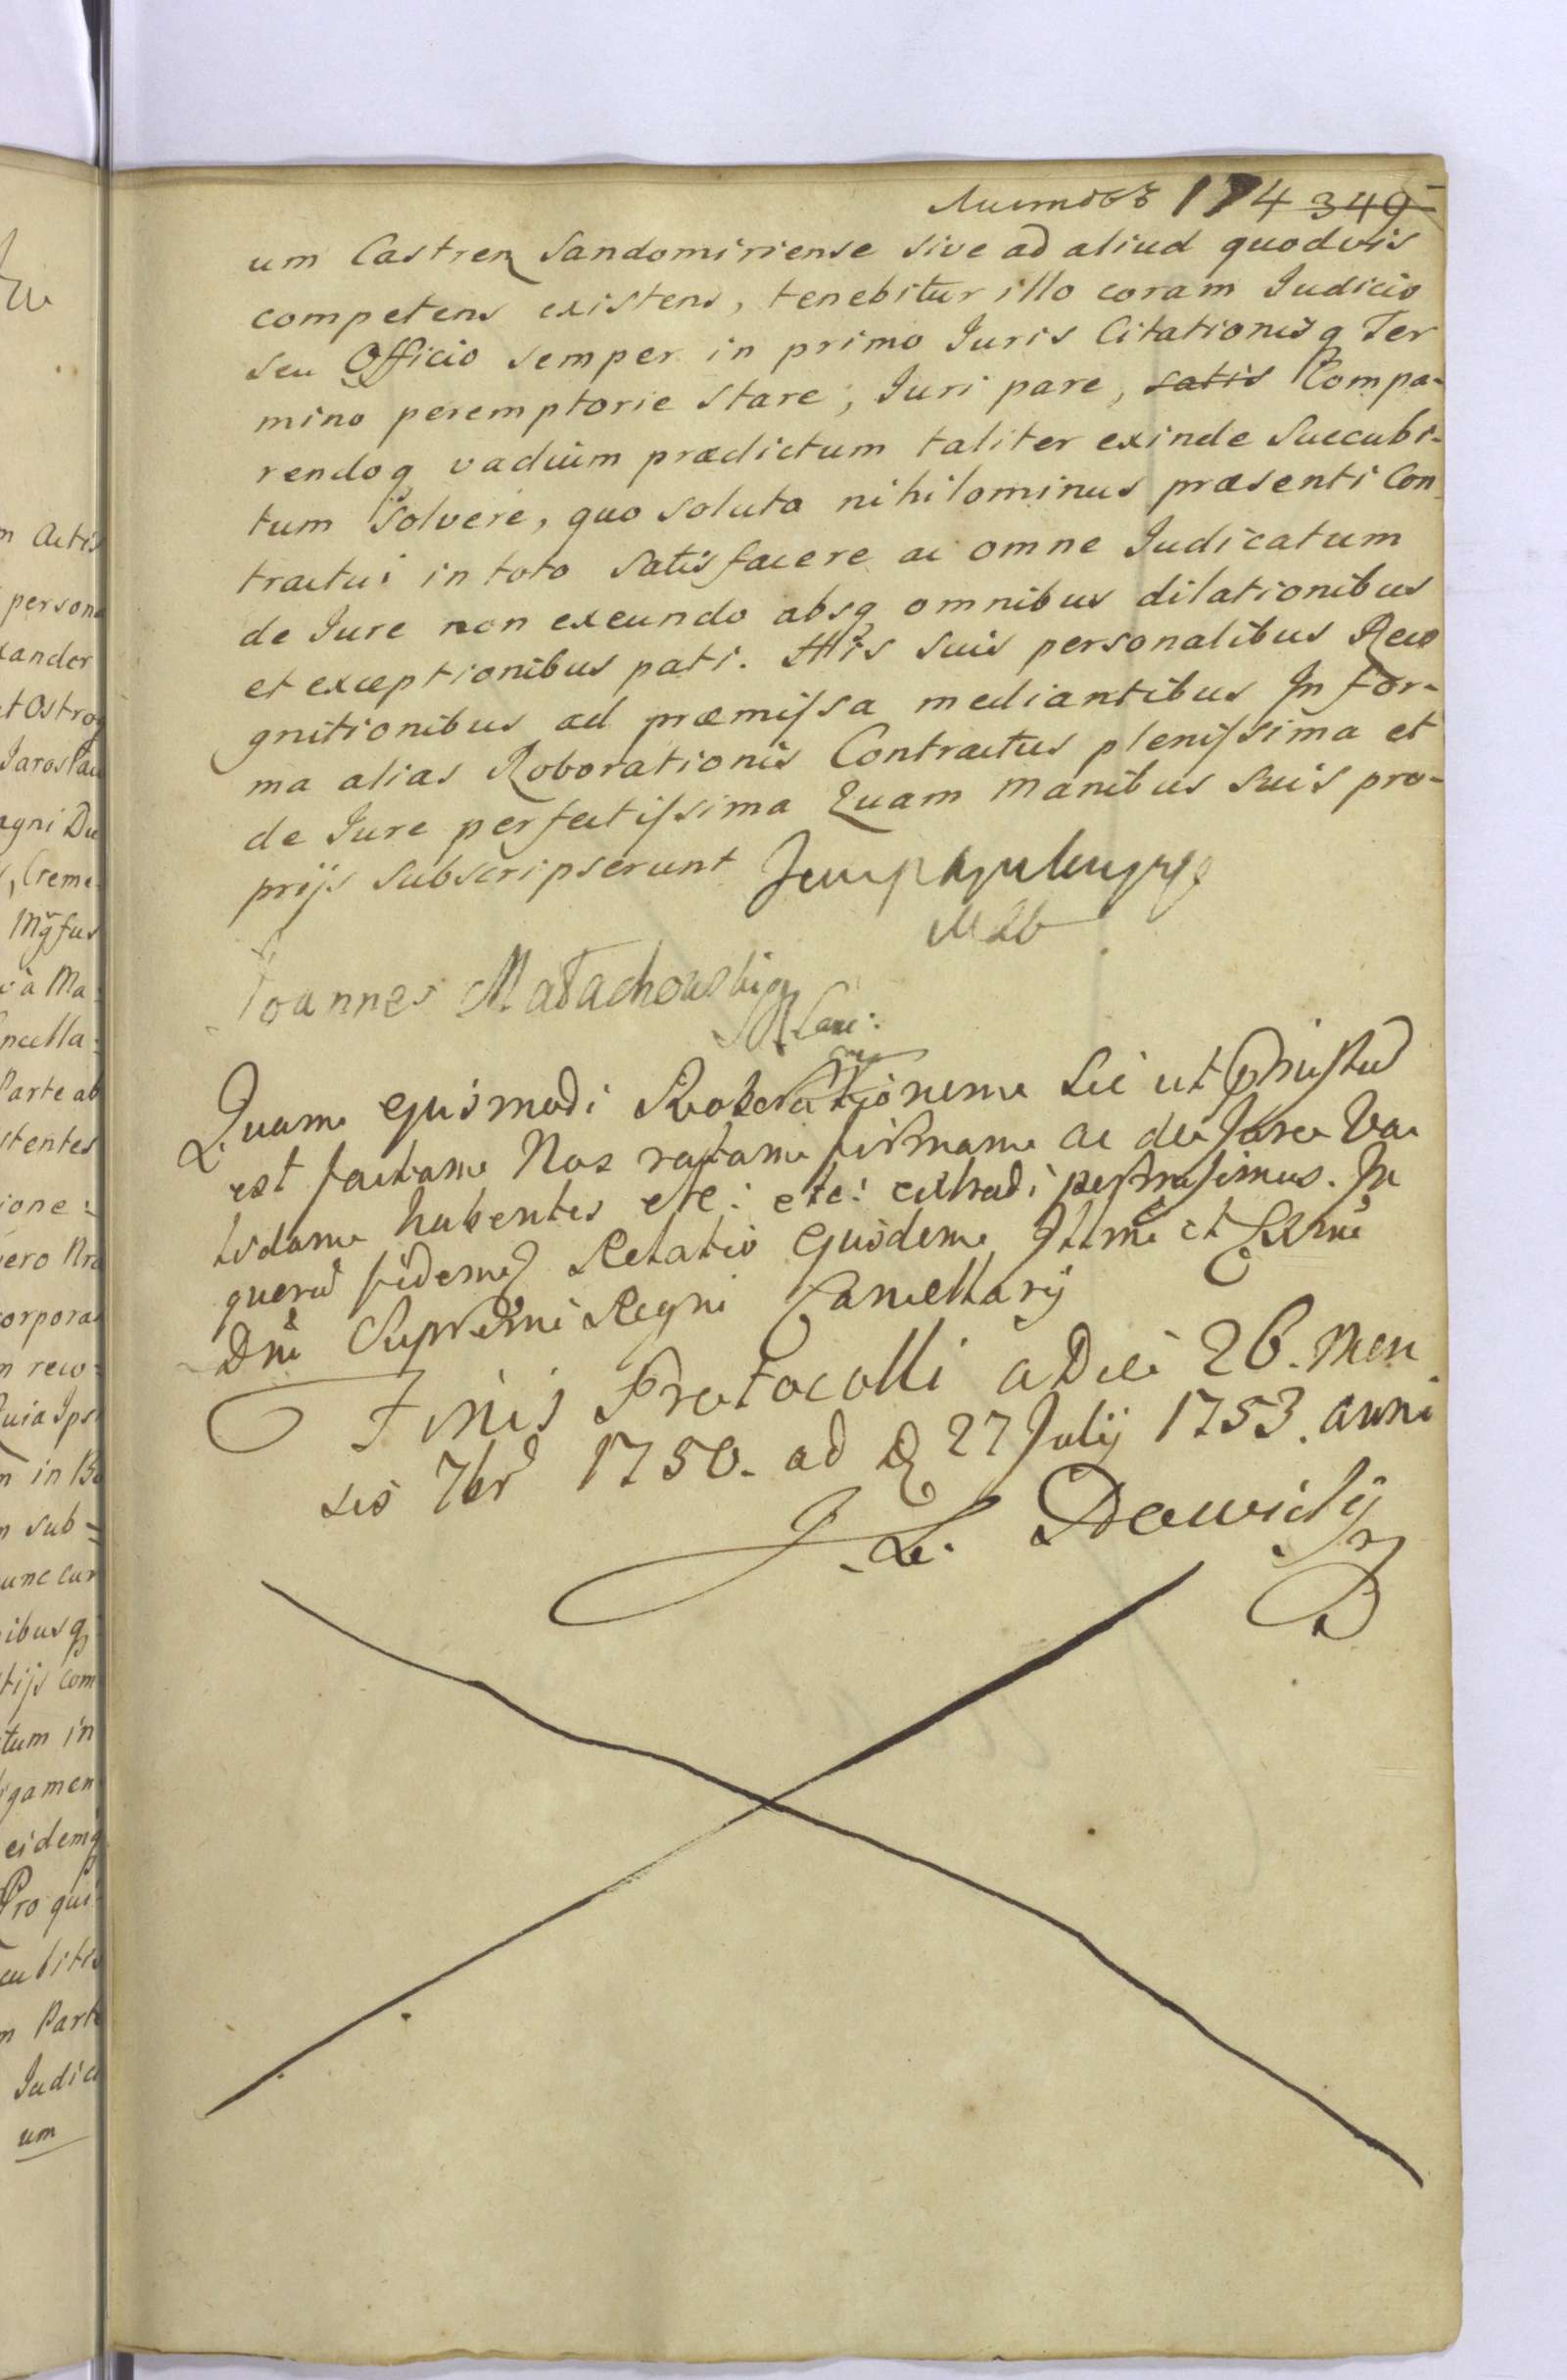 Листовъ 174 349
um Castren Sandomiriense sive ad aliud quodvis
competens existens, tenebitur illo coram Iudicio
seu Officio semper in primo Iuris Citationisq Ter
mino peremptorie stare, Iuri pare, satis Compa-
rendoq vadium prædictum taliter exinde succubi-
tum solvere, quo soluto nihilominus præsenti Con
tractui in toto satisfacere ac omne Iudicatum
de Iure non exeundo absq omnibus dilationibus
et exceptionibus pati. His suis personalibus Reco
gnitionibus ad præmissa mediantibus In for-
ma alias Roborationis Contractus plenissima et
de Iure perfectissima Quam manibus suis pro-
prijs subscripserunt
Joannes Małachowski
Quam ejusmodi Roborationem sic ut
est factam Nos ratam firmam ac de Jure Va
lidam habentes etc: etc: extradi permisimus. In
quoru fidem Relatio Ejusdem Illmi et Exmi
Dni Supremi Regni Cancellarij
Finis Protocolli a Die 26. Men
sis 7br 1750. ad D 27 Julij 1753. anni
m Actis
persona
xander
et Ostrog
Jaroslau
agni Du
, Creme
va Ma:
ncella:
Parte ab
stentes
ione:
vero Nra
corpora
m reco:
Quia Ips
m in Bo
n sub=
unc cur
ibusq
tijs com
tum in
igamen
eidemq
Pro qui
cubitis
m Parte
Judici
um